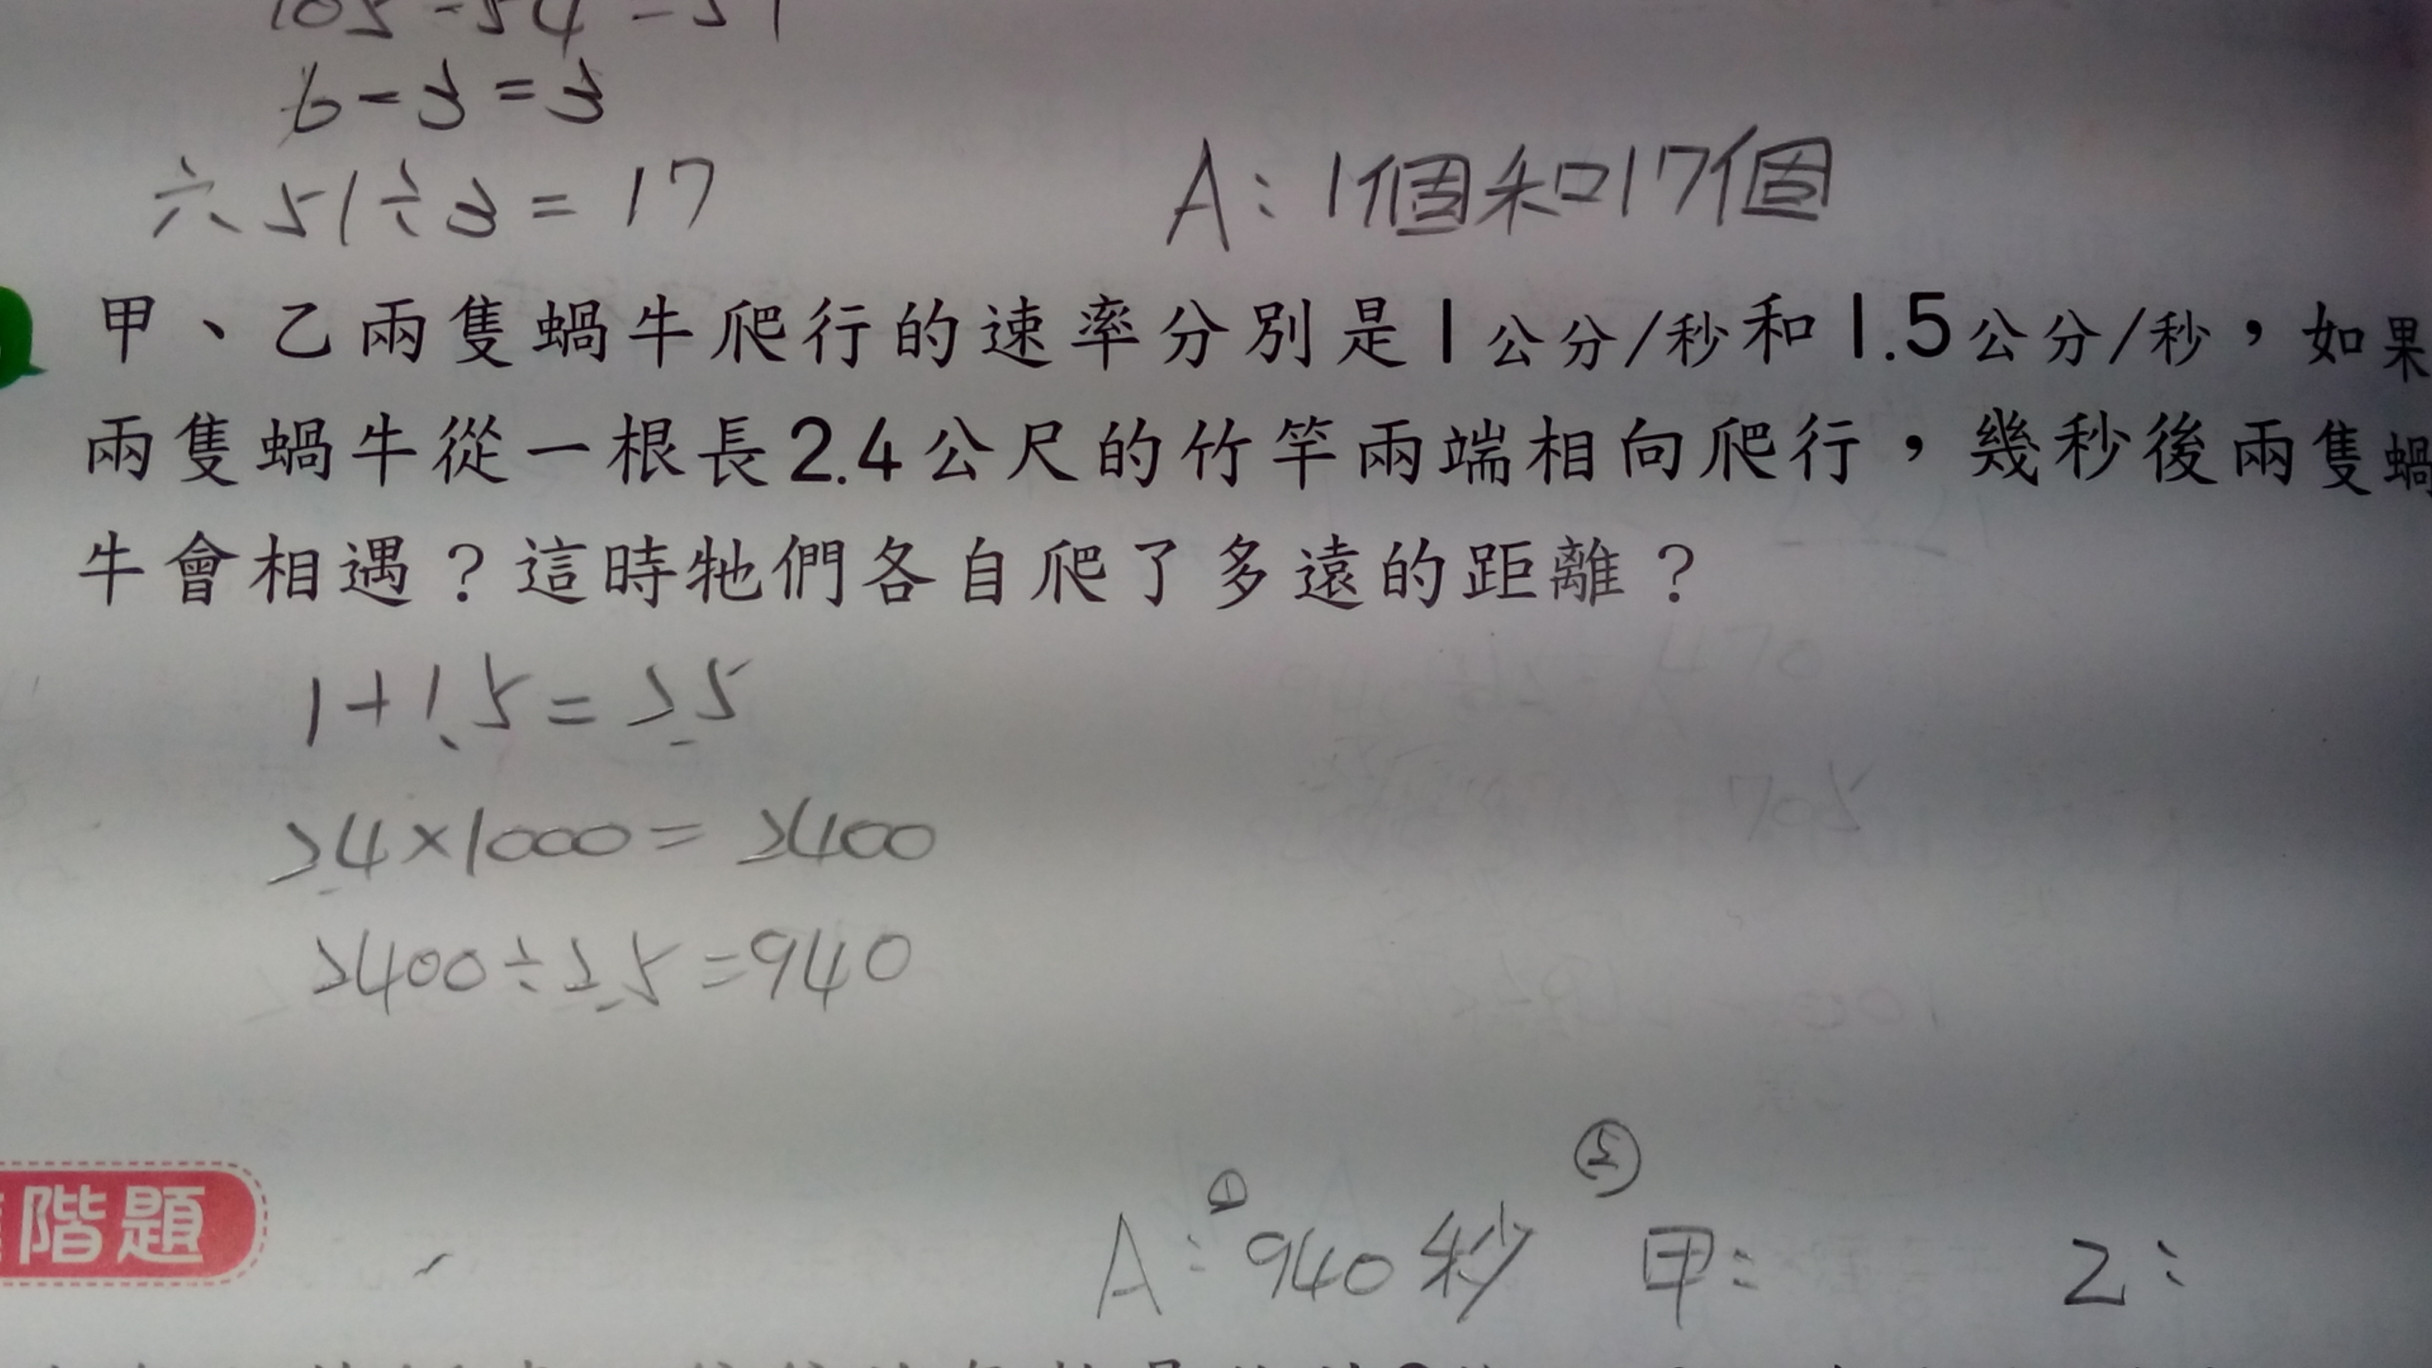 105-54=51
6-3=3
六51÷3=17
A:1個和17個
甲、乙兩隻蝸牛爬行的速率分別是1公分/秒和1.5公分/秒,如果
兩隻蝸牛從一根長2.4公尺的竹竿兩端相向爬行,幾秒後兩隻蝸
牛會相遇?這時牠們各自爬了多遠的距離?
1+1.5=2.5
2.4×1000=2400
2400÷2.5=940
A:①940秒 ⑤甲: 乙:
階題